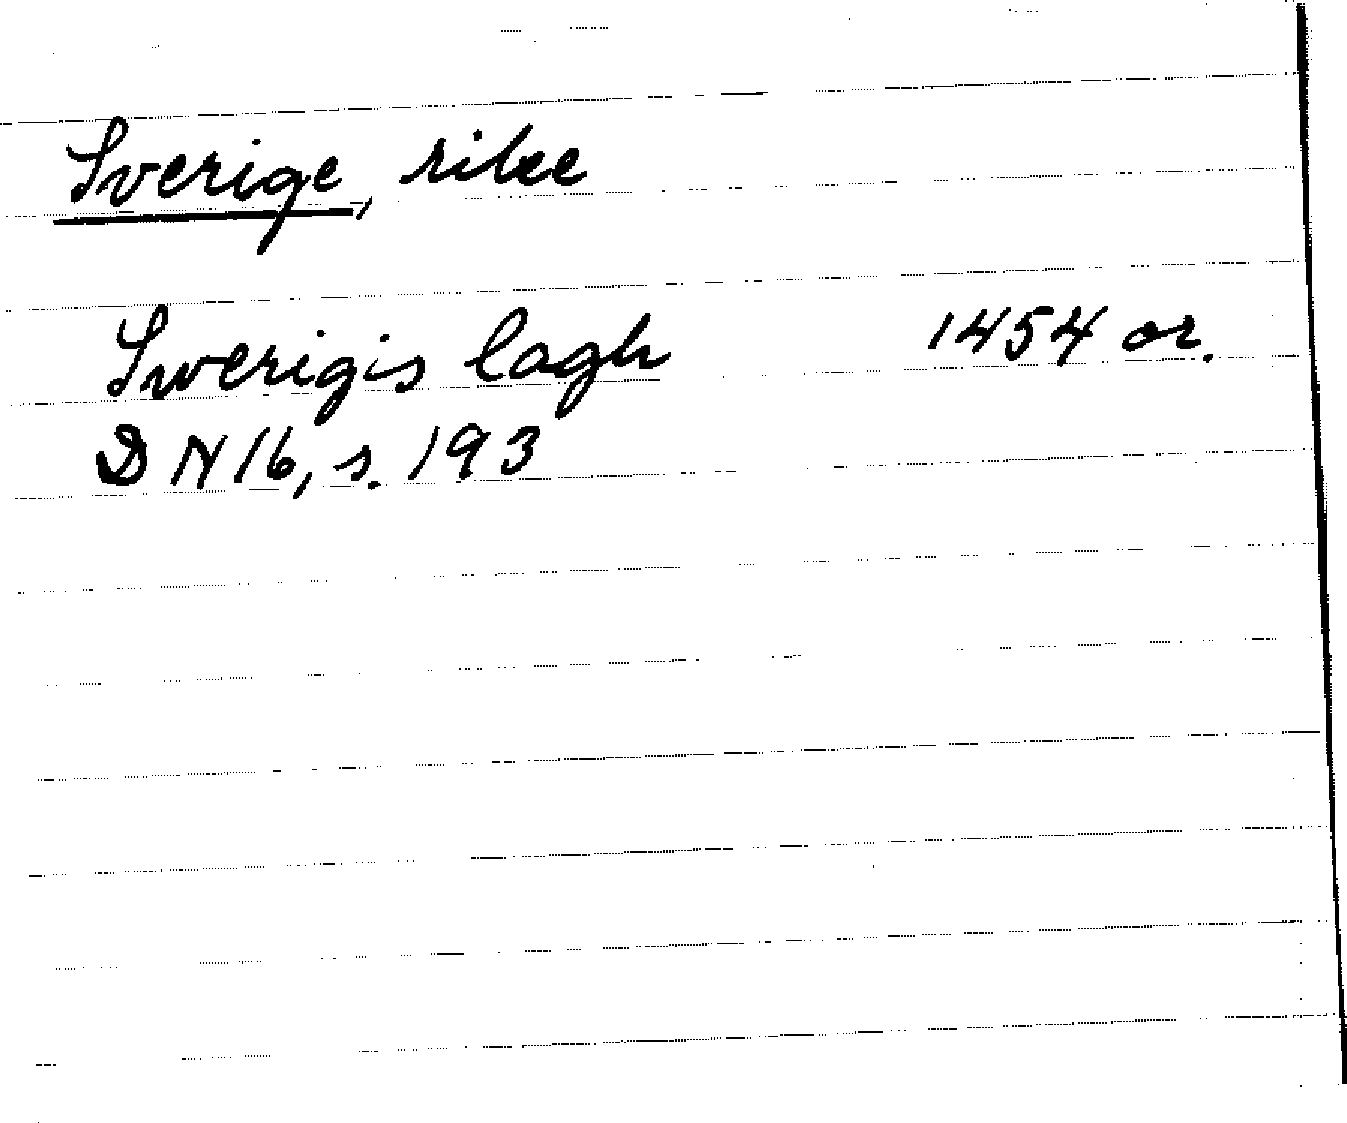 Sverige, rike
Swerigis lagh 1454 or.
DN 16, s. 193